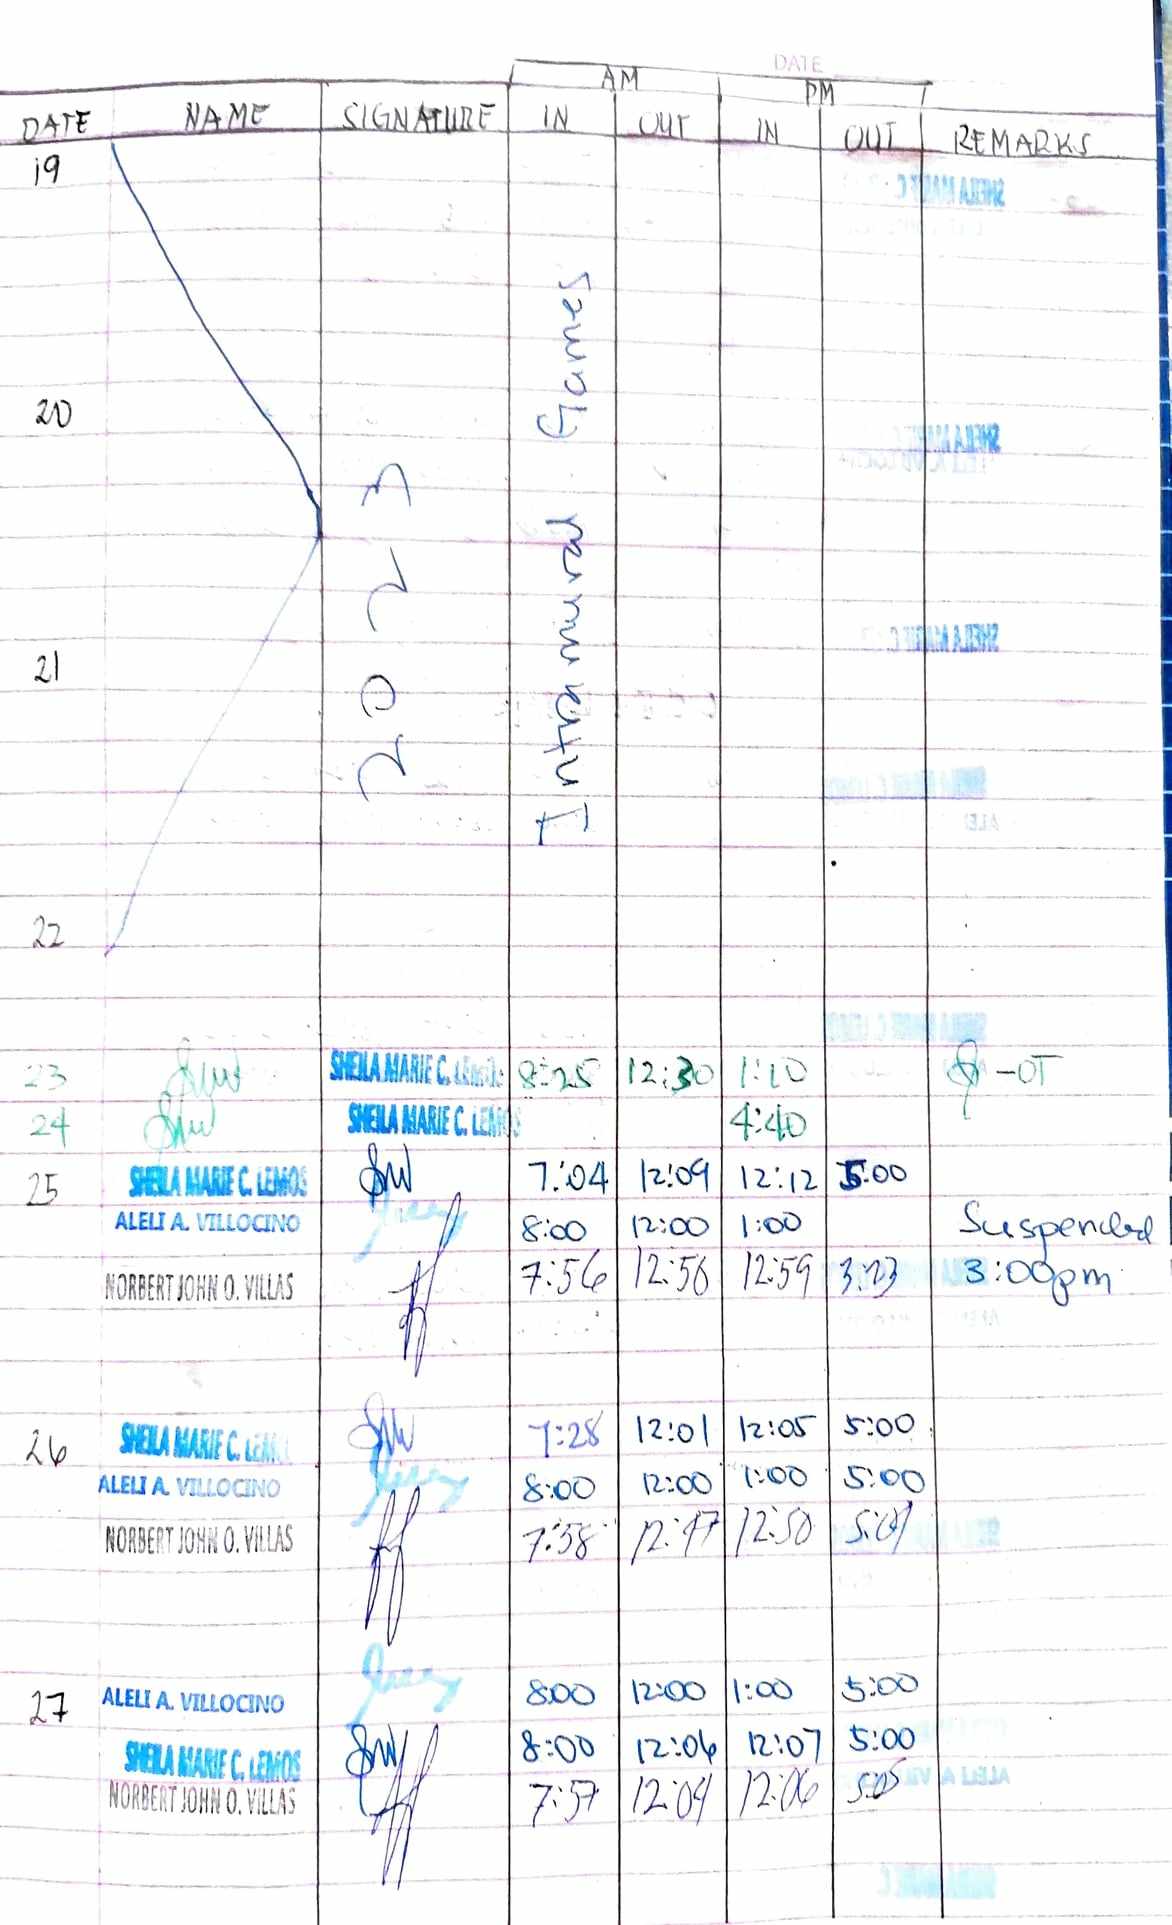 DATE
AM PM
DATE NAME SIGNATURE IN OUT IN OUT REMARKS
19
20
21
22
2023
Intramural Games
23 SHEILA MARIE C. LEMOS 8:25 12:30 1:10 -OT
24 SHEILA MARIE C. LEMOS 4:40
25 SHEILA MARIE C. LEMOS 7:04 12:09 12:12 5:00
ALELI A. VILLOCINO 8:00 12:00 1:00 Suspended
NORBERT JOHN O. VILLAS 7:56 12:56 12:59 3:23 3:00pm
26 SHEILA MARIE C. LEMOS 7:28 12:01 12:05 5:00
ALELI A. VILLOCINO 8:00 12:00 1:00 5:00
NORBERT JOHN O. VILLAS 7:58 12:47 12:50 5:01
27 ALELI A. VILLOCINO 8:00 12:00 1:00 5:00
SHEILA MARIE C. LEMOS 8:00 12:06 12:07 5:00
NORBERT JOHN O. VILLAS 7:57 12:04 12:06 5:05